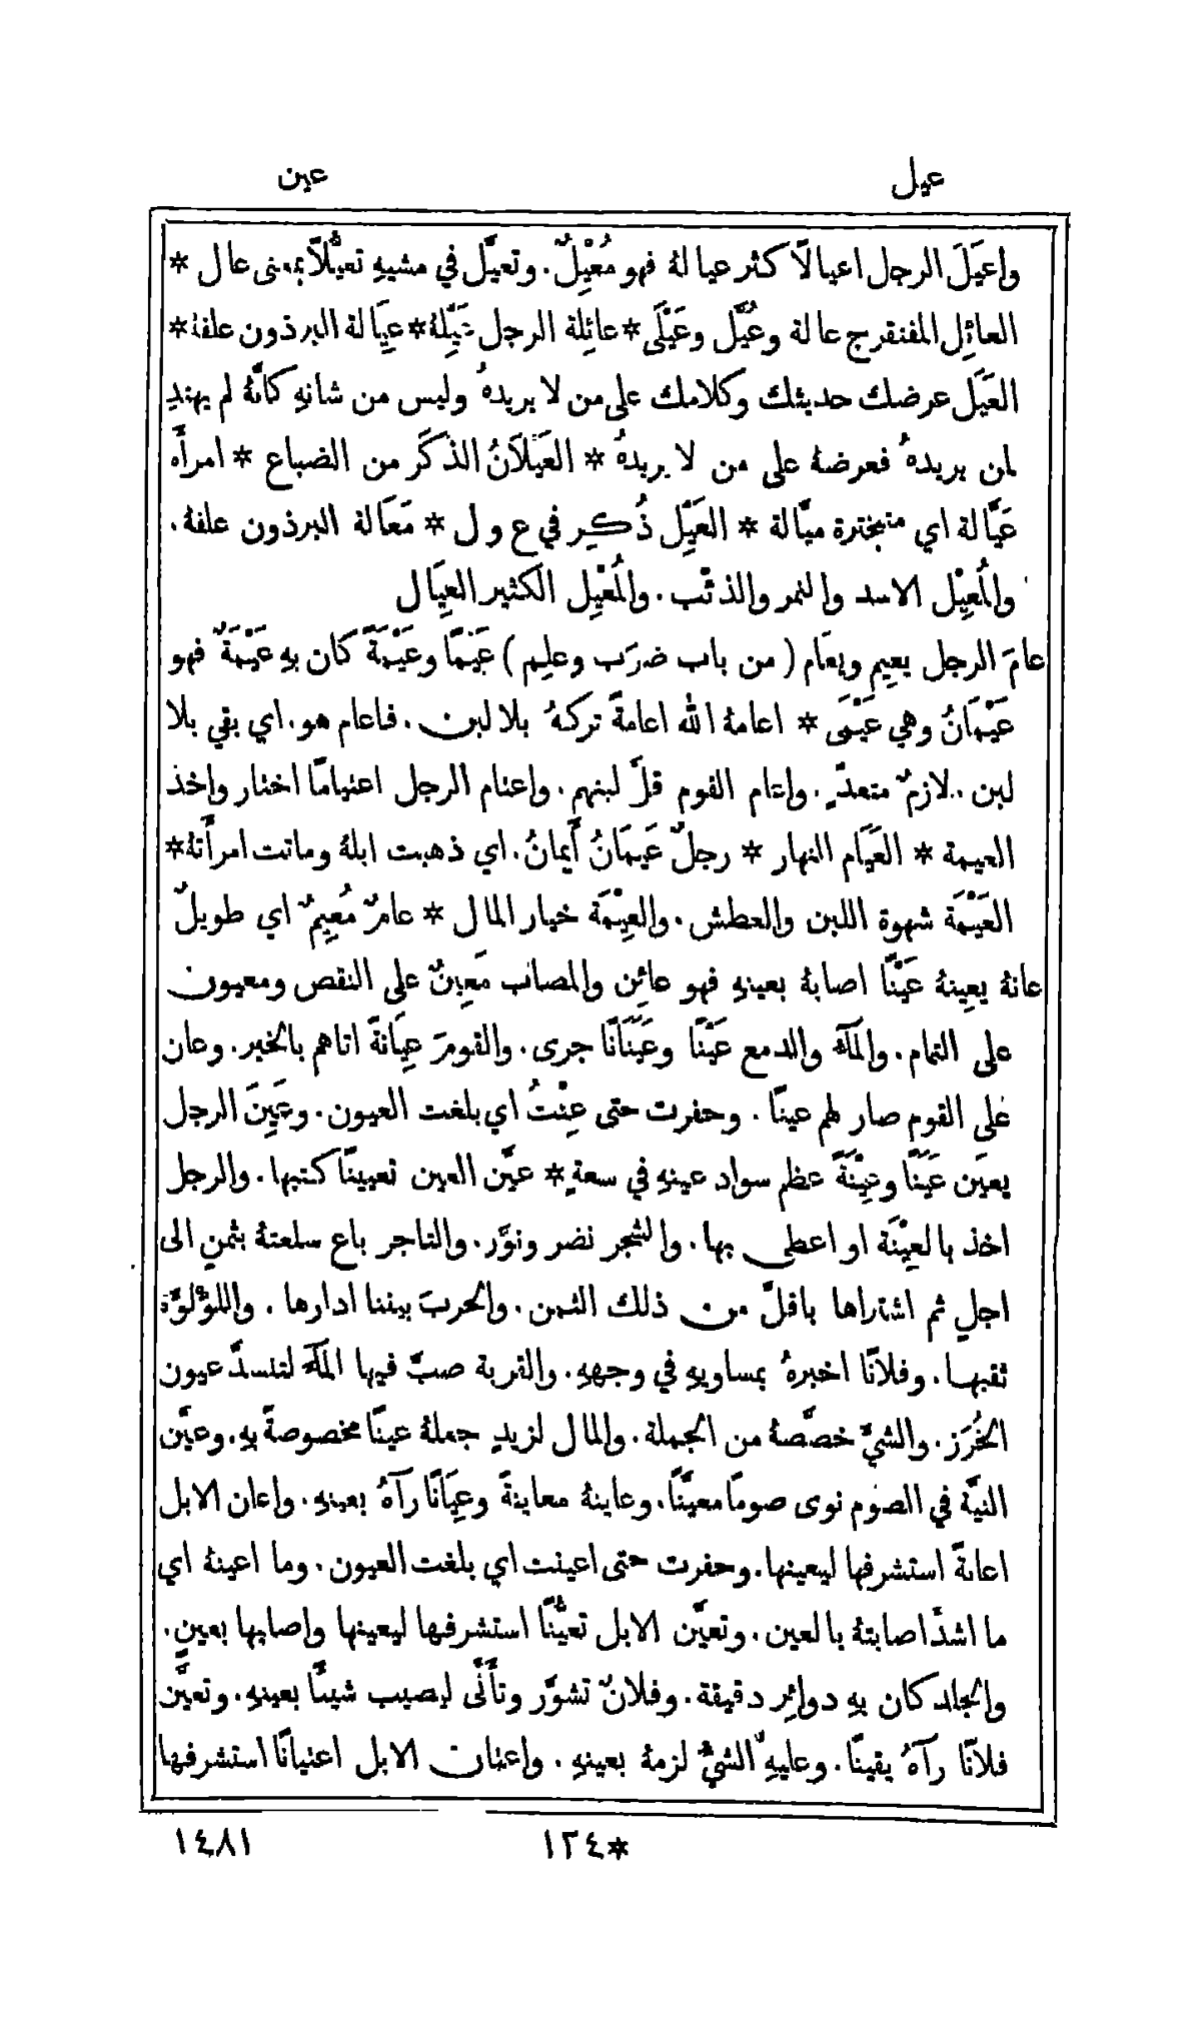 عيل عين
واعيَلَ الرجل اعيالًا كثر عيالهُ فهو مُعْيِلٌ. وتعيَّل في مشيهِ تعيُّلًا بمعنى عال *
العائِل المفتقر ج عالة وعُيَّل وعَيْلَى * عائِلة الرجل عَيِّلهُ * عيَالة البرذون علفهُ *
العَيَل عرضك حديثك وكلامك على من لا يريدهُ وليس من شانهِ كانَّهُ لم يهتدِ
لمن يريدهُ فعرضهُ على من لا يريدهُ * العَيَلَانُ الذَكَر من الضباع * امرأَة
عَيَّالة اي متبخترة ميَّالة * العَيِّل ذُكِر في ع و ل * مَعَالة البرذون علفهُ.
والمُعِيْل الاسد والنمر والذئب. والمُعْيِل الكثير العِيَال
عامَ الرجل يعِيم ويعَام (من باب ضرَب وعلِم) عَيْمًا وعَيْمَةً كان بهِ عَيْمَةٌ فهو
عَيْمَانُ وهي عَيْمَى * اعامهُ الله اعامةً تركهُ بلا لبن. فاعام هو. اي بقي بلا
لبن. لازمٌ متعدٍّ. واعام القوم قلَّ لبنهم. واعتام الرجل اعتيامًا اختار واخذ
العيمة * العَيَام النهار * رجلٌ عَيمَانُ أَيمانُ. اي ذهبت ابلهُ وماتت امرأَتهُ *
العَيْمَة شهوة اللبن والعطش. والعِيْمَة خيار المال * عامٌ مُعِيمٌ اي طويلٌ
عانهُ يعِينهُ عَيْنًا اصابهُ بعينهِ فهو عائِن والمصاب مَعِينٌ على النقص ومعيون
على التمام. والمآءُ والدمع عَيْنًا وعَيَنَانًا جرى. والقومَ عِيَانةً اتاهم بالخير. وعان
على القوم صار لهم عينًا. وحفرت حتى عِنْتُ اي بلغت العيون. وعَيِنَ الرجل
يعيَن عَيَنًا وعِيْنَةً عظم سواد عينهِ في سعةٍ * عيَّن العين تعيينًا كتبها. والرجل
اخذ بالعِيْنَة او اعطى بها. والشجر نضر ونوَّر. والتاجر باع سلعتهُ بثمنٍ الى
اجلٍ ثم اشتراها باقلَّ من ذلك الثمن. والحربَ بيننا ادارها. واللؤلؤَة
ثقبها. وفلانًا اخبرهُ بمساويهِ في وجههِ. والقربة صبَّ فيها المآءَ لتنسدَّ عيون
الخُرَز. والشيءَ خصَّصهُ من الجملة. والمال لزيدٍ جعلهُ عينًا مخصوصةً بهِ. وعيَّن
النيَّة في الصوم نوى صومًا معيَّنًا. وعاينهُ معاينةً وعِيَانًا رآهُ بعينهِ. واعان الابل
اعانةً استشرفها ليعينها. وحفرت حتى اعينت اي بلغت العيون. وما اعينهُ اي
ما اشدَّ اصابتهُ بالعين. وتعيَّن الابل تعيُّنًا استشرفها ليعينها واصابها بعينٍ.
والجلد كان بهِ دوائِر دقيقة. وفلانٌ تشوَّر وتأَنَّى ليصيب شيئًا بعينهِ. وتعيَّن
فلانًا رآهُ يقينًا. وعليهِ الشيُّ لزمهُ بعينهِ. واعتان الابل اعتيانًا استشرفها
*١٢٤ ١٤٨١